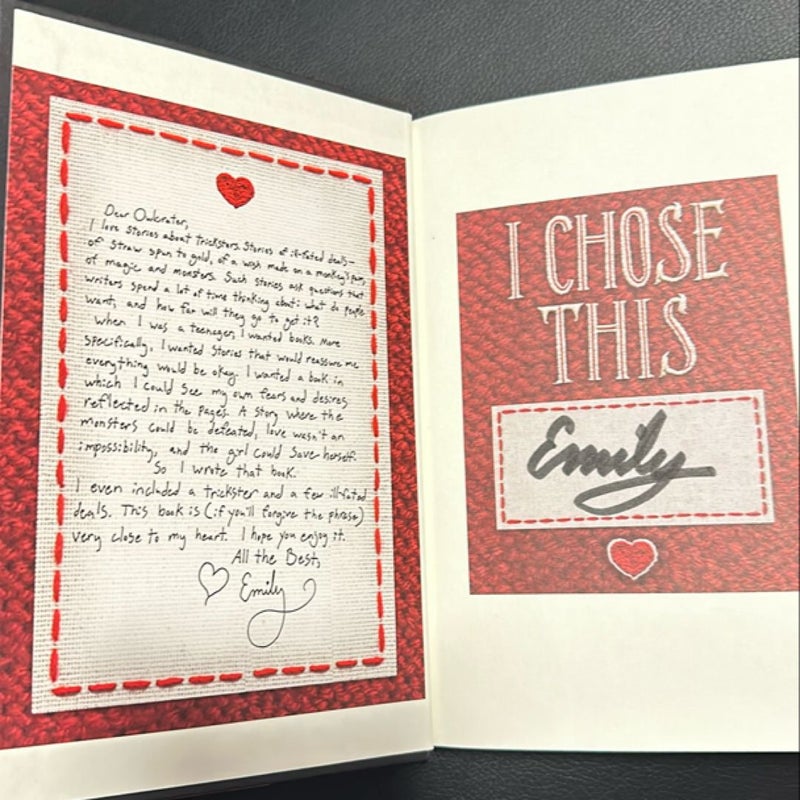 Dear Owlcrater,
I love stories about tricksters. Stories of ill-fated deals—
of straw spun to gold, of a wish made on a monkey's paw,
of magic and monsters. Such stories ask questions that
writers spend a lot of time thinking about: what do people
want, and how far will they go to get it?
When I was a teenager, I wanted books. More
specifically, I wanted stories that would reassure me
everything would be okay. I wanted a book in
which I could see my own fears and desires
reflected in the pages. A story where the
monsters could be defeated, love wasn't an
impossibility, and the girl could save herself.
So I wrote that book.
I even included a trickster and a few ill-fated
deals. This book is (if you'll forgive the phrase)
very close to my heart. I hope you enjoy it.
All the Best,
Emily
I CHOSE
THIS
Emily